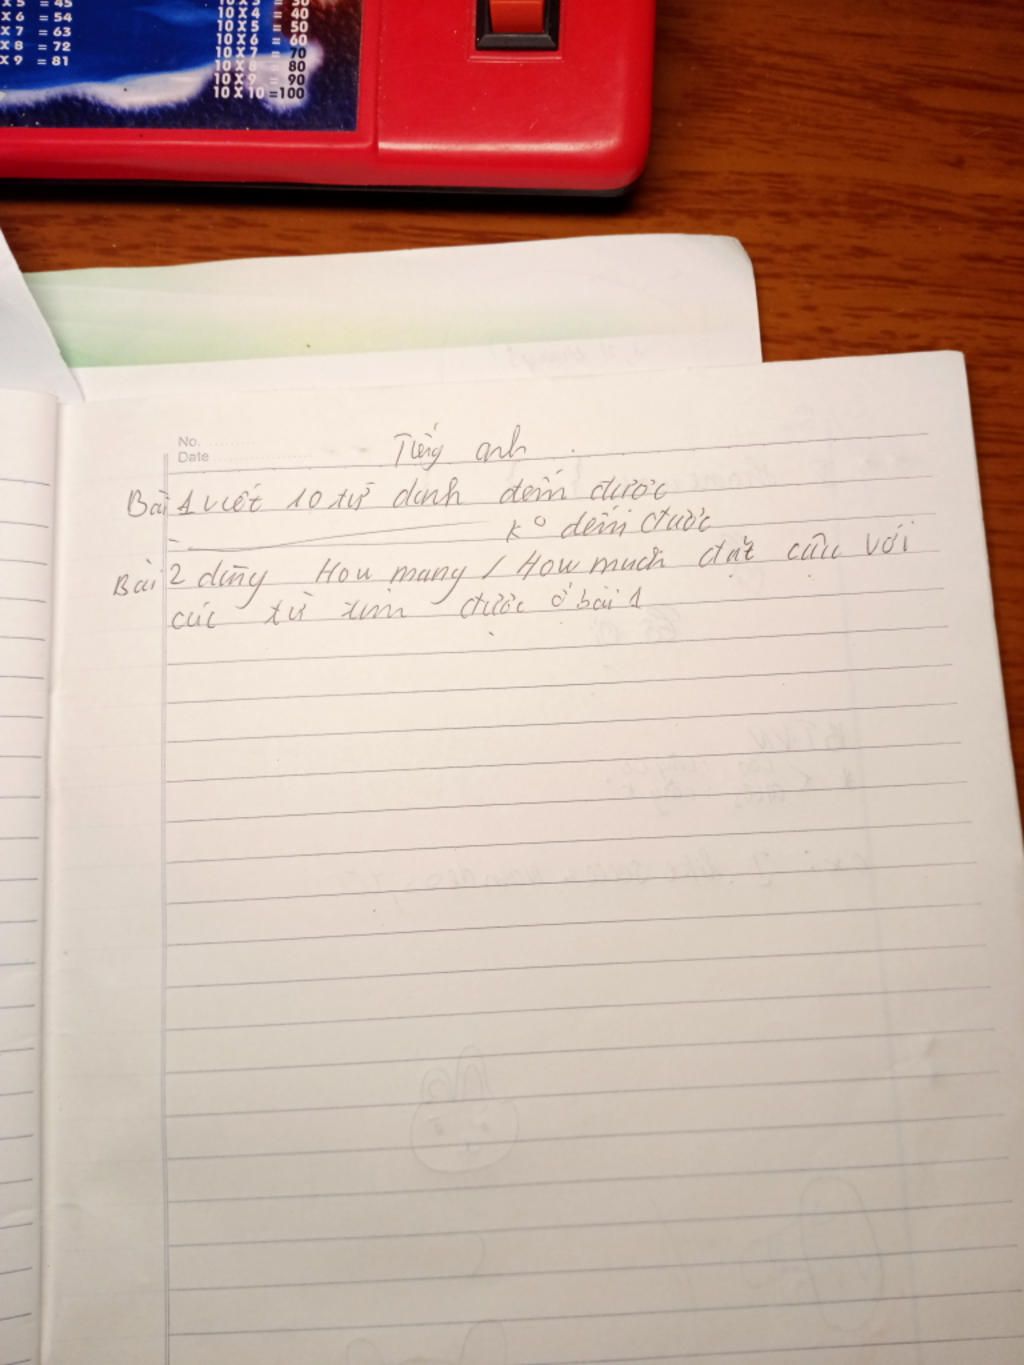 x 5 = 45
x 6 = 54
x 7 = 63
x 8 = 72
x 9 = 81
10 x 3 = 30
10 x 4 = 40
10 x 5 = 50
10 x 6 = 60
10 x 7 = 70
10 x 8 = 80
10 x 9 = 90
10 x 10 = 100
No.
Date
Tiếng anh
Bài 1 viết 10 từ danh đếm được
- k° đếm được
Bài 2 dùng How many / How much đặt câu với
các từ tìm được ở bài 1